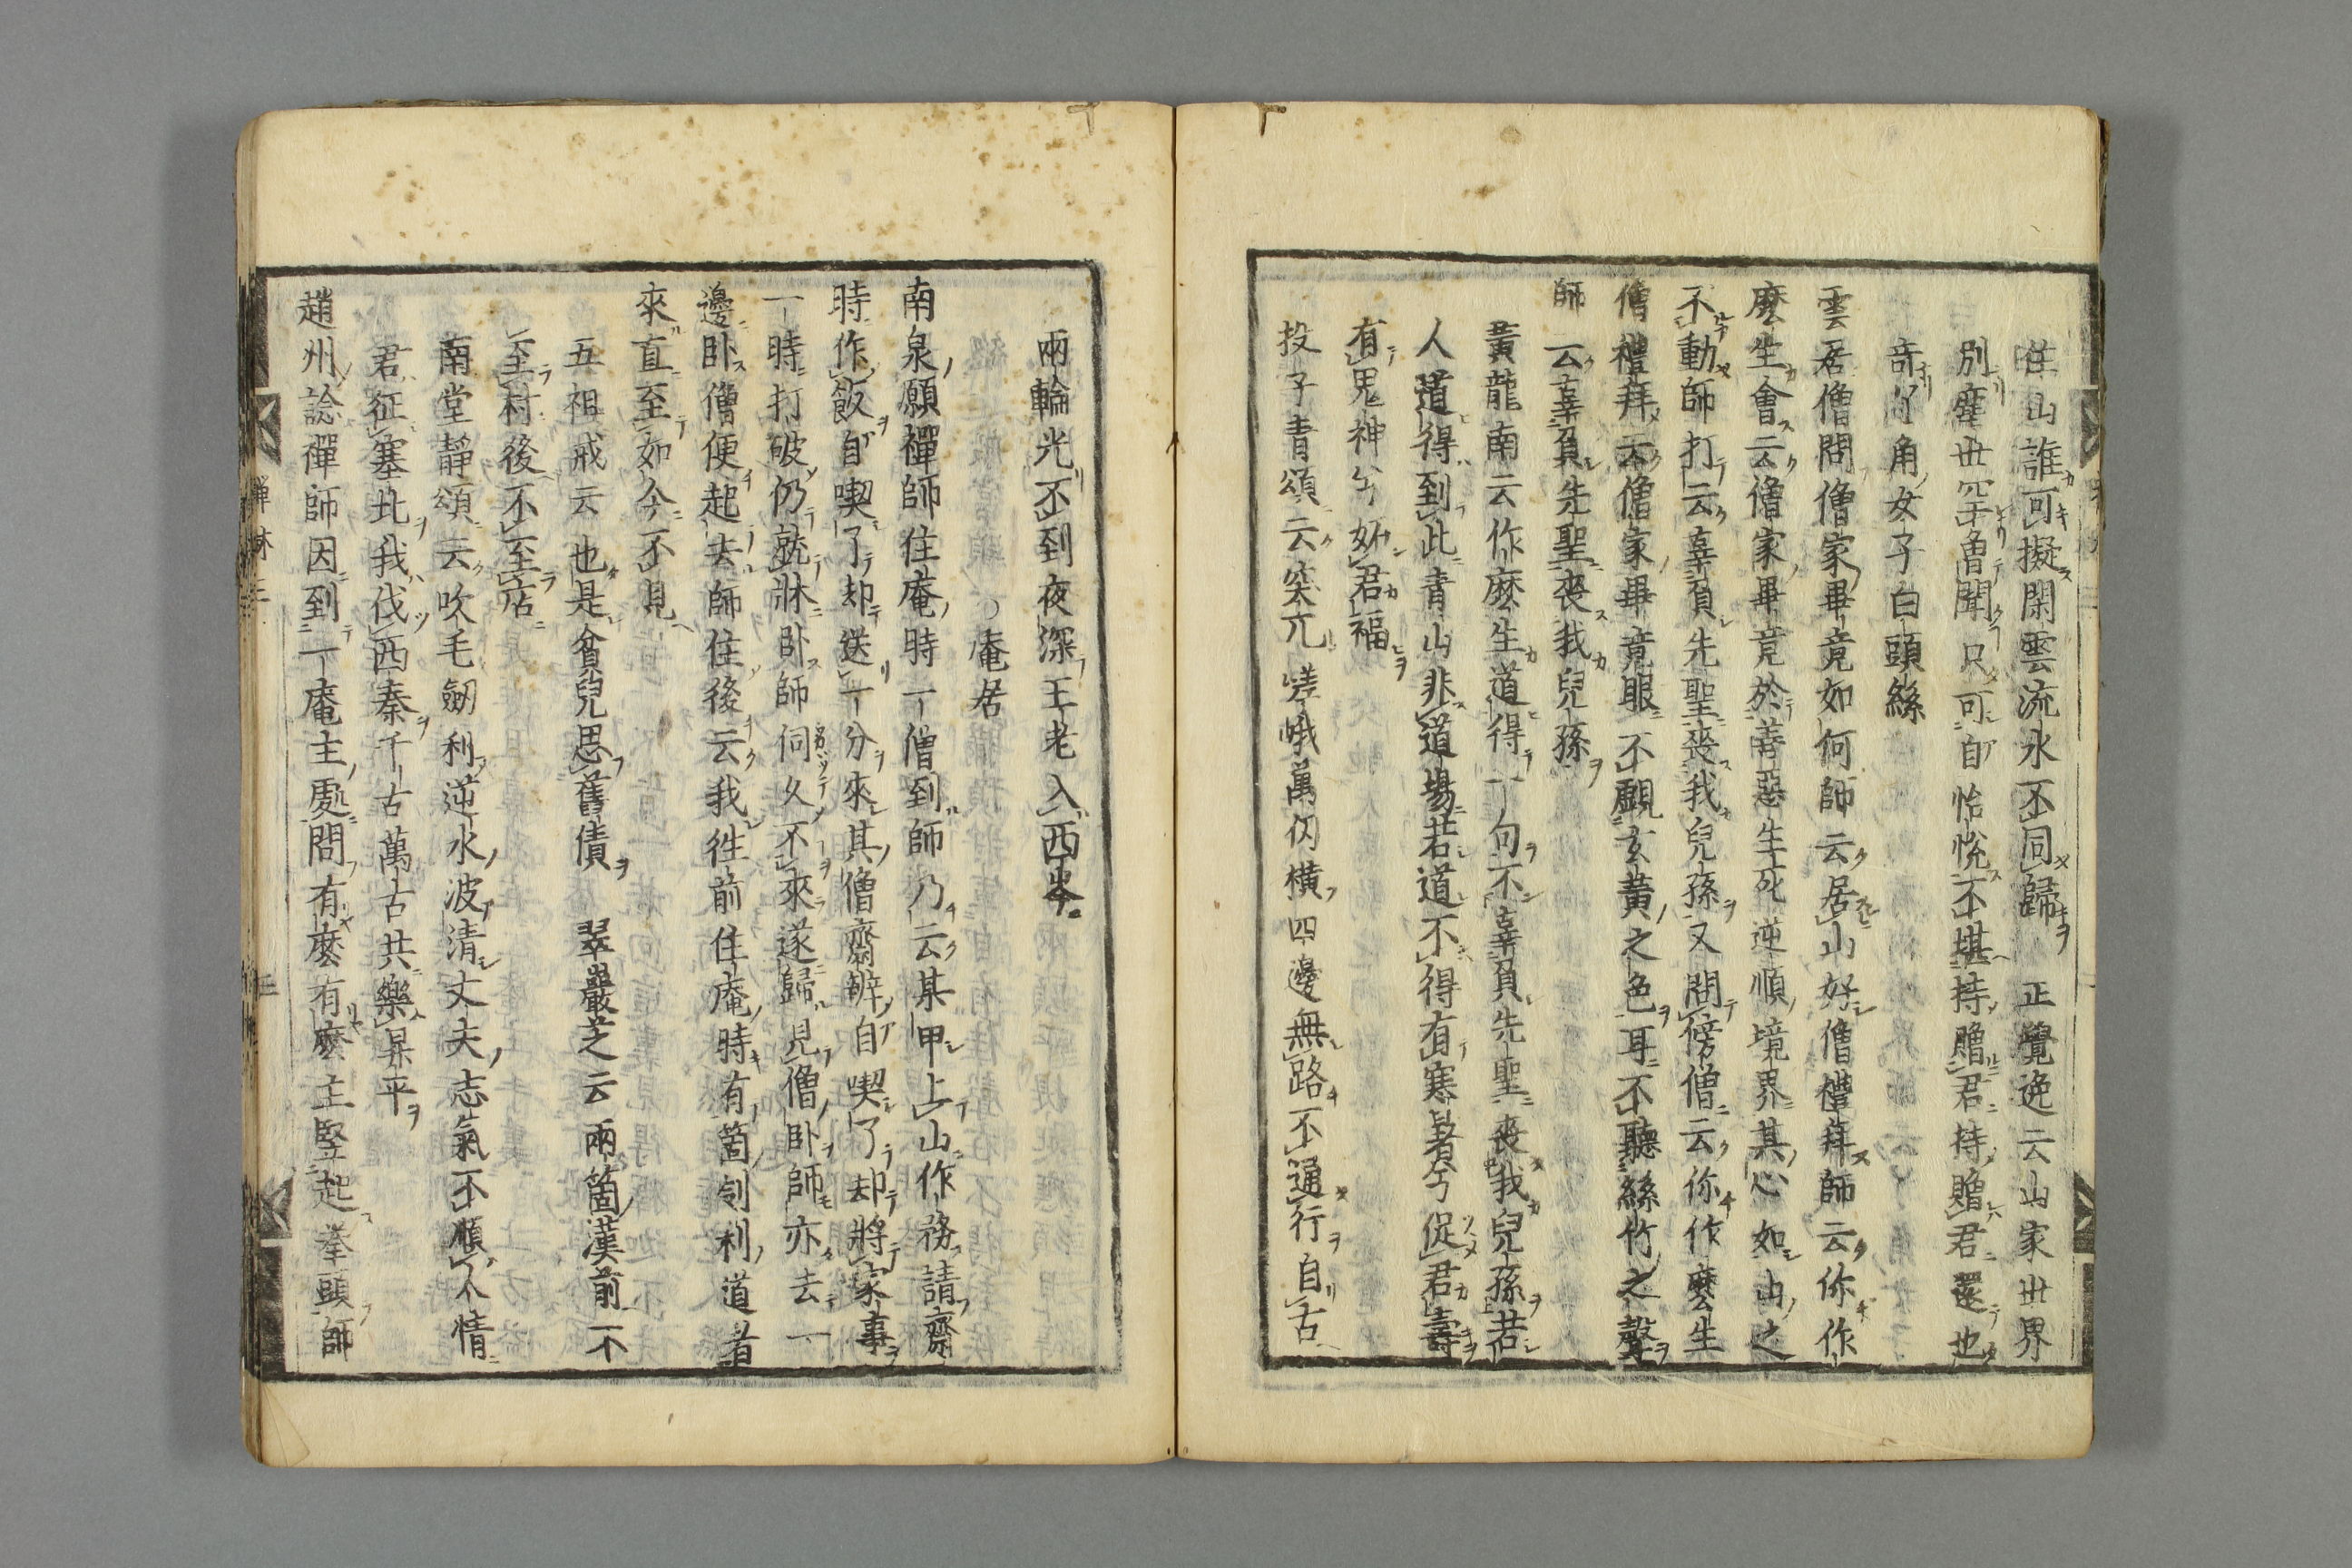 住山誰可擬閑雲流水不同歸　正覺逸云山家世界
別塵世罕曾聞只可自怡悅不堪持贈君持贈君還也
奇丫角女子白頭絲
雲居僧問僧家畢竟如何師云居山好僧禮拜師云你作
麼生會云僧家畢竟於善惡生死逆順境界其心如山之
不動師打云辜負先聖喪我兒孫又問傍僧云你作麼生
僧禮拜云僧家畢竟眼不觀玄黃之色耳不聽絲竹之聲
師云辜負先聖喪我兒孫
黃龍南云作麼生道得一句不辜負先聖喪我兒孫若
人道得到此青山非道場若道不得有寒暑兮促君壽
有鬼神兮妬君福
投子青頌云突兀嵯峨萬仞橫四邊無路不通行自古
兩輪光不到夜深王老入西岑
庵居
南泉願禪師住庵時一僧到師乃云某甲上山作務請齋
時作飯自喫了却送一分來其僧齋辨自喫了却將家事
一時打破仍就牀臥師伺久不來遂歸見僧臥師亦去一
邊臥僧便起去師住後云我往前住庵時有箇刢利道者
來直至如今不見
五祖戒云也是貧兒思舊債　翠巖芝云兩箇漢前不
至村後不至店
南堂靜頌云吹毛劒利逆水波清丈夫志氣不順人情
君征塞北我伐西秦千古萬古共樂昇平
趙州諗禪師因到一庵主處問有麼有麼主竪起拳頭師
禪林二